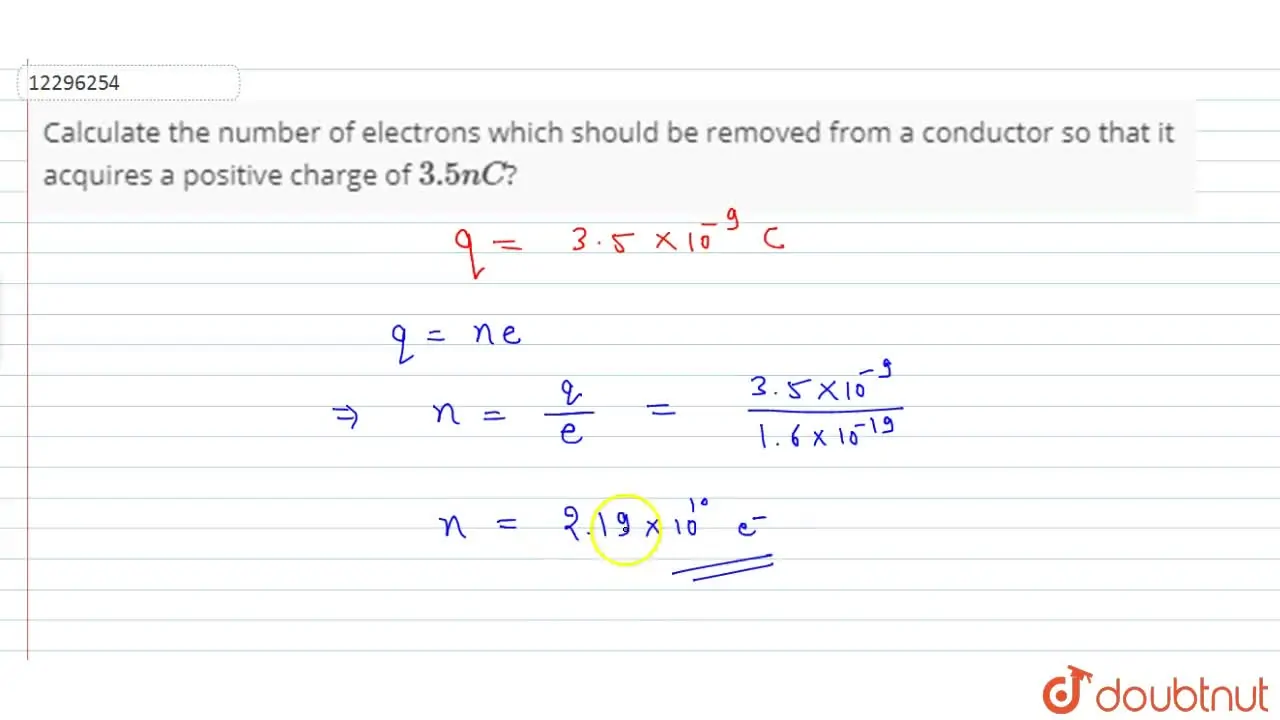 12296254
Calculate the number of electrons which should be removed from a conductor so that it
acquires a positive charge of 3.5nC?
q = 3.5 × 10⁻⁹ C
q = ne
⇒ n = q/e = 3.5 × 10⁻⁹ / 1.6 × 10⁻¹⁹
n = 2.19 × 10¹⁰ e⁻
doubtnut